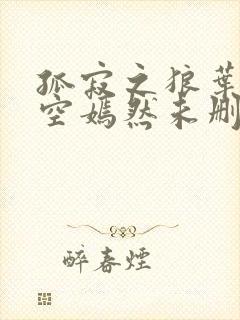 孤寂之狼葉
空嫣然未刪
醉春煙